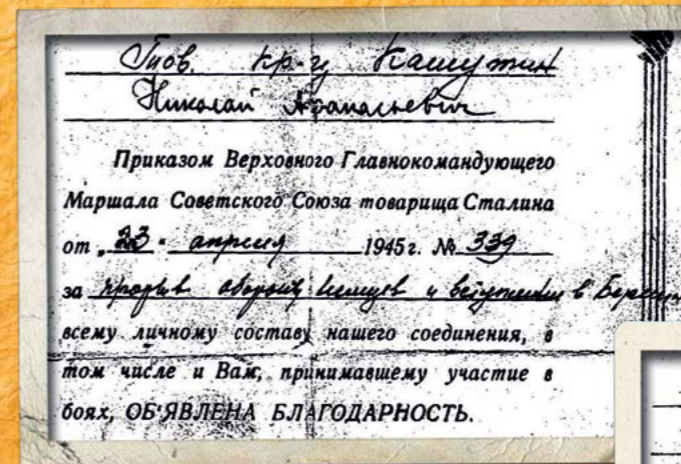 Тов. кр-ц Кашутин
Николай Афанасьевич
Приказом Верховного Главнокомандующего
Маршала Советского Союза товарища Сталина
от „23“ апреля 1945 г. № 339
за прорыв обороны немцев и вступление в Берлин
всему личному составу нашего соединения, в
том числе и Вам, принимавшему участие в
боях, ОБ'ЯВЛЕНА БЛАГОДАРНОСТЬ.